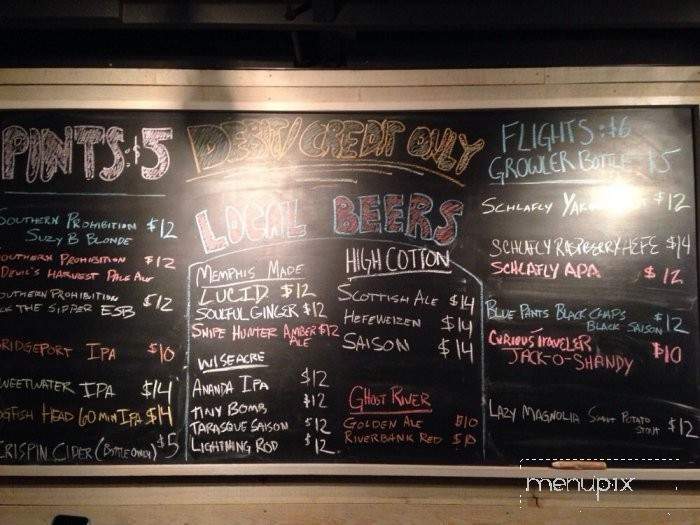 PINTS: $5
SOUTHERN PROHIBITION $12
SUZY B BLONDE
SOUTHERN PROHIBITION $12
DEVIL'S HARVEST PALE ALE
SOUTHERN PROHIBITION $12
THE SIPPER ESB
BRIDGEPORT IPA $10
SWEETWATER IPA $14
DOGFISH HEAD 60 MIN IPA $14
CRISPIN CIDER (BOTTLE ONLY) $5
DEBIT/CREDIT ONLY
LOCAL BEERS
MEMPHIS MADE
LUCID $12
SOULFUL GINGER $12
SNIPE HUNTER AMBER $12
ALE
WISEACRE
ANANDA IPA $12
TINY BOMB $12
TARASQUE SAISON $12
LIGHTNING ROD $12
HIGH COTTON
SCOTTISH ALE $14
HEFEWEIZEN $14
SAISON $14
GHOST RIVER
GOLDEN ALE $10
RIVERBANK RED $10
FLIGHTS: $6
GROWLER BOTTLE $5
SCHLAFLY $12
SCHLAFLY RASPBERRY HEFE $14
SCHLAFLY APA $12
BLUE PANTS BLACK CHAPS $12
BLACK SAISON
CURIOUS TRAVELER $10
JACK-O-SHANDY
LAZY MAGNOLIA SWEET POTATO $12
STOUT
menupix